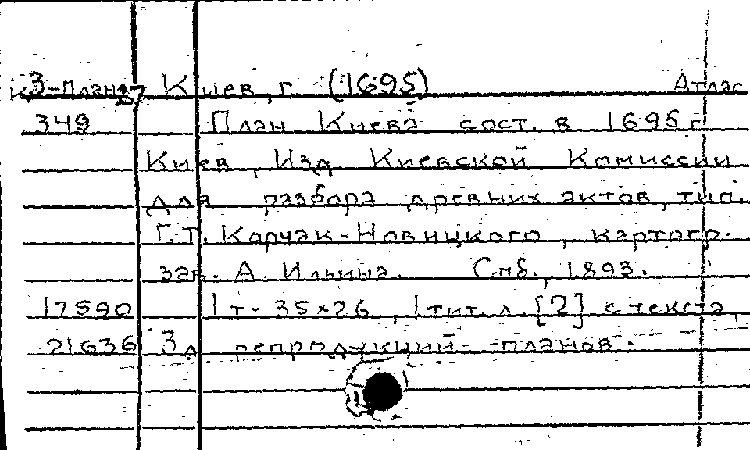 К3-План37 Киев, г. (1695) Атлас
349 План Киева сост. в 1695 г
Киев, Изд Киевской Комиссии
для разбора древних актов, тип.
Г.Т. Карчак-Новицкого, картогр.
зав. А Ильина. Спб., 1893.
17590 1 т. 35×26, 1 тит. л. [2] с текста,
21636 3 л репродукций планов.